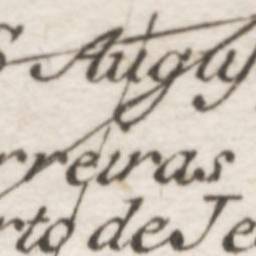 S Augus
rreiras
rto de Je